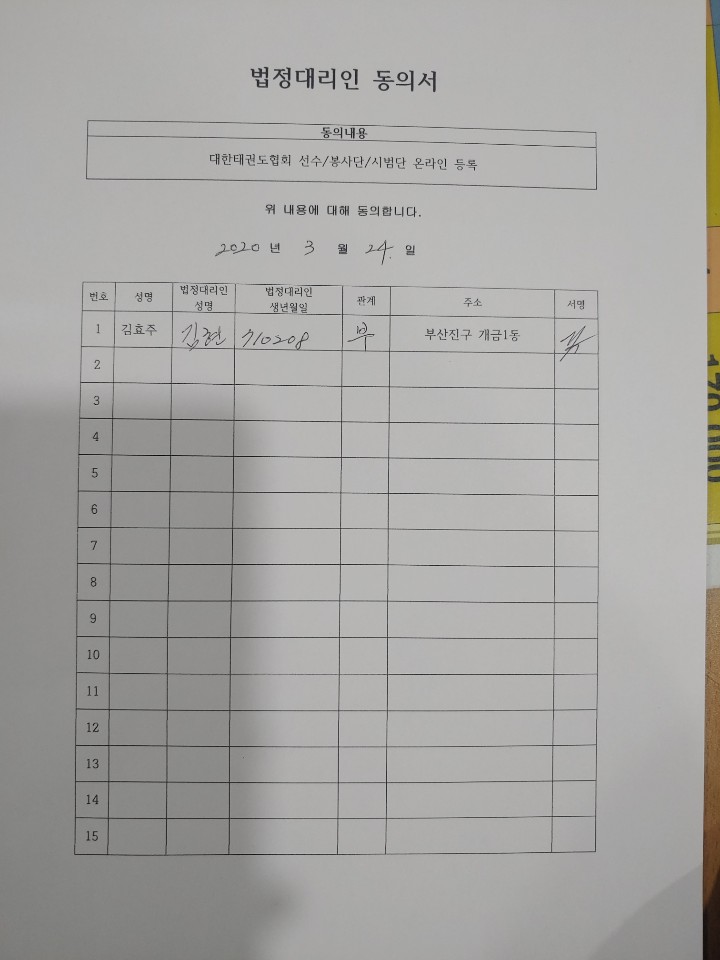 법정대리인 동의서
동의내용
대한태권도협회 선수/봉사단/시범단 온라인 등록
위 내용에 대해 동의합니다.
2020 년 3 월 24. 일
번호 성명 법정대리인 성명 법정대리인 생년월일 관계 주소 서명
1 김효주 김현 710208 부 부산진구 개금1동
2
3
4
5
6
7
8
9
10
11
12
13
14
15